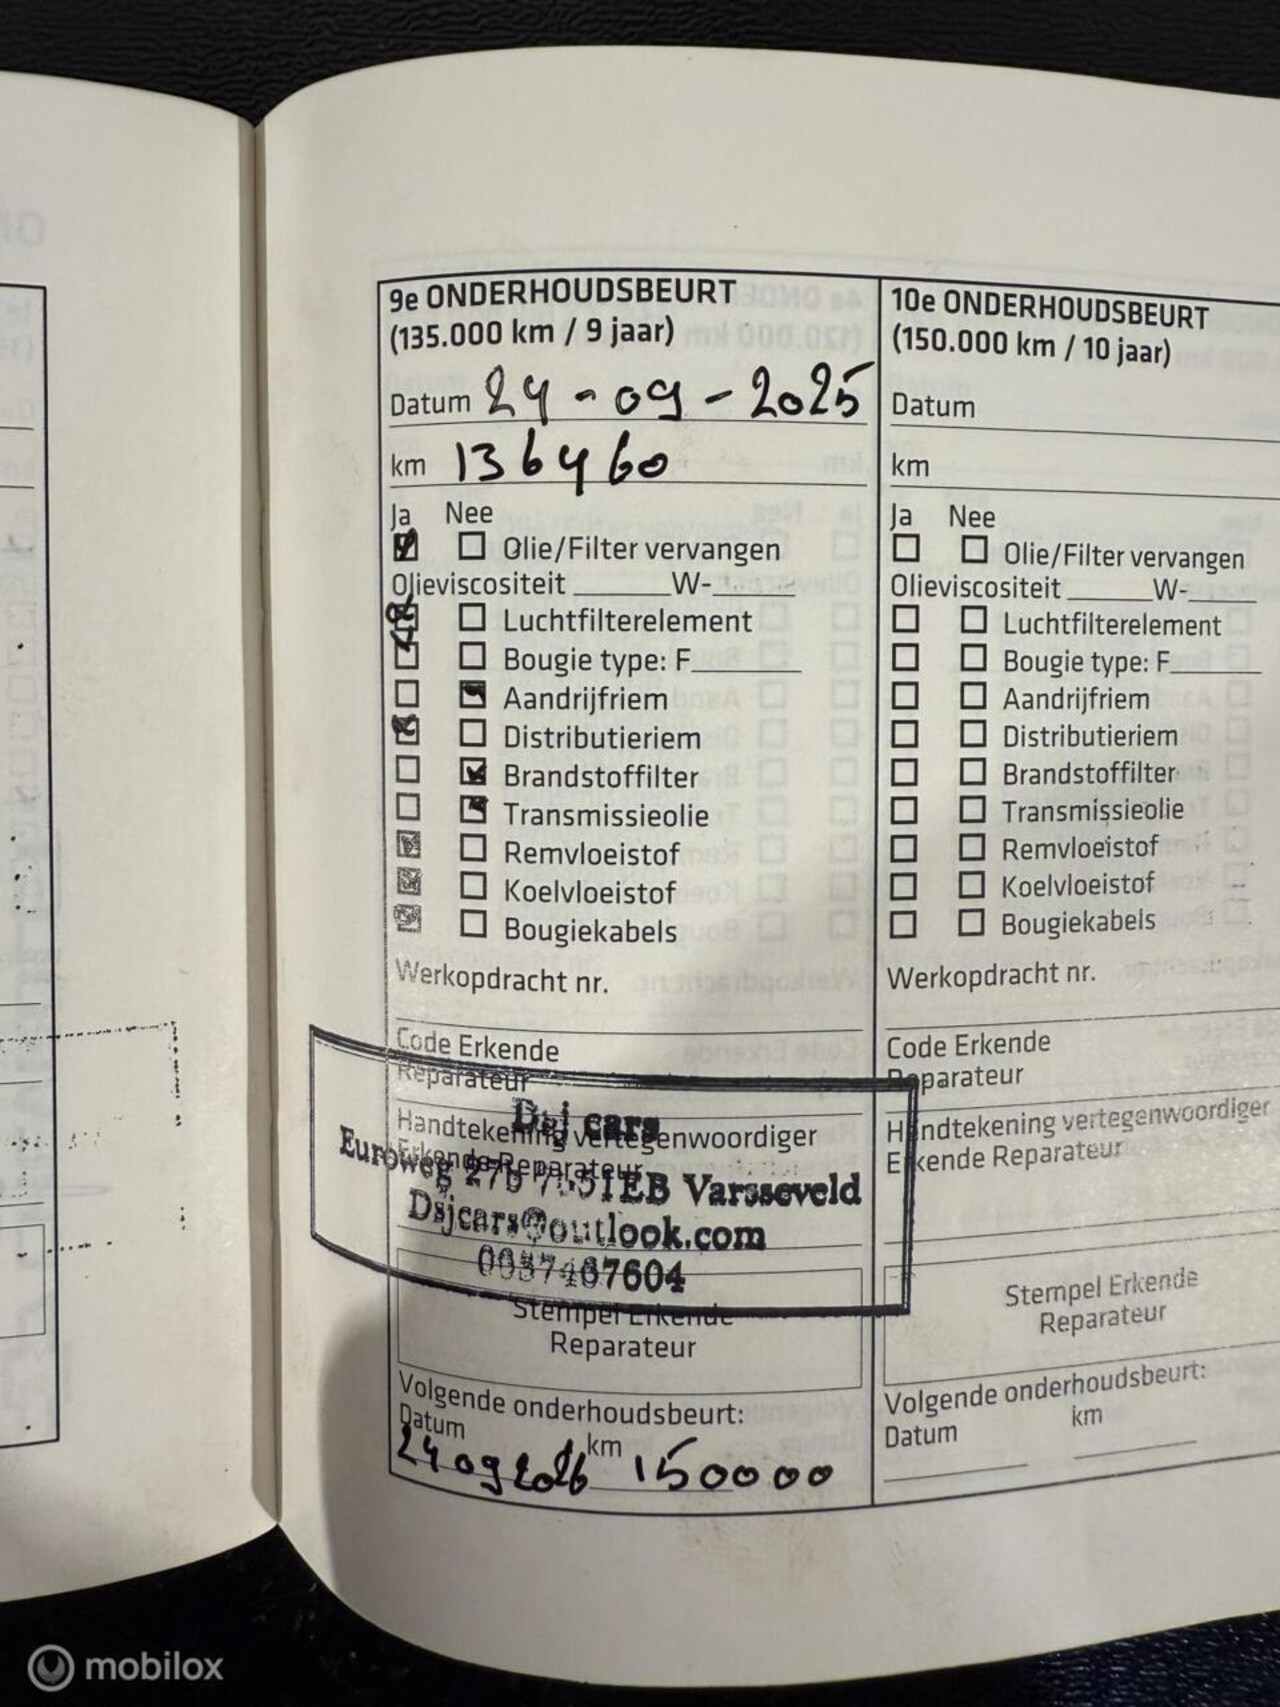 9e ONDERHOUDSBEURT
(135.000 km / 9 jaar)
Datum 24-09-2025
km 136460
Ja Nee
Olie/Filter vervangen
Olieviscositeit ______W-______
Luchtfilterelement
Bougie type: F______
Aandrijfriem
Distributieriem
Brandstoffilter
Transmissieolie
Remvloeistof
Koelvloeistof
Bougiekabels
Werkopdracht nr.
Code Erkende
Reparateur
Handtekening vertegenwoordiger
Erkende Reparateur
Dsj cars
Euroweg 27b EB Varsseveld
Dsjcars@outlook.com
Stempel Erkende
Reparateur
Volgende onderhoudsbeurt:
Datum km
24 09 2026 150000
10e ONDERHOUDSBEURT
(150.000 km / 10 jaar)
Datum
km
Ja Nee
Olie/Filter vervangen
Olieviscositeit ______W-______
Luchtfilterelement
Bougie type: F______
Aandrijfriem
Distributieriem
Brandstoffilter
Transmissieolie
Remvloeistof
Koelvloeistof
Bougiekabels
Werkopdracht nr.
Code Erkende
Reparateur
Handtekening vertegenwoordiger
Erkende Reparateur
Stempel Erkende
Reparateur
Volgende onderhoudsbeurt:
Datum km
mobilox